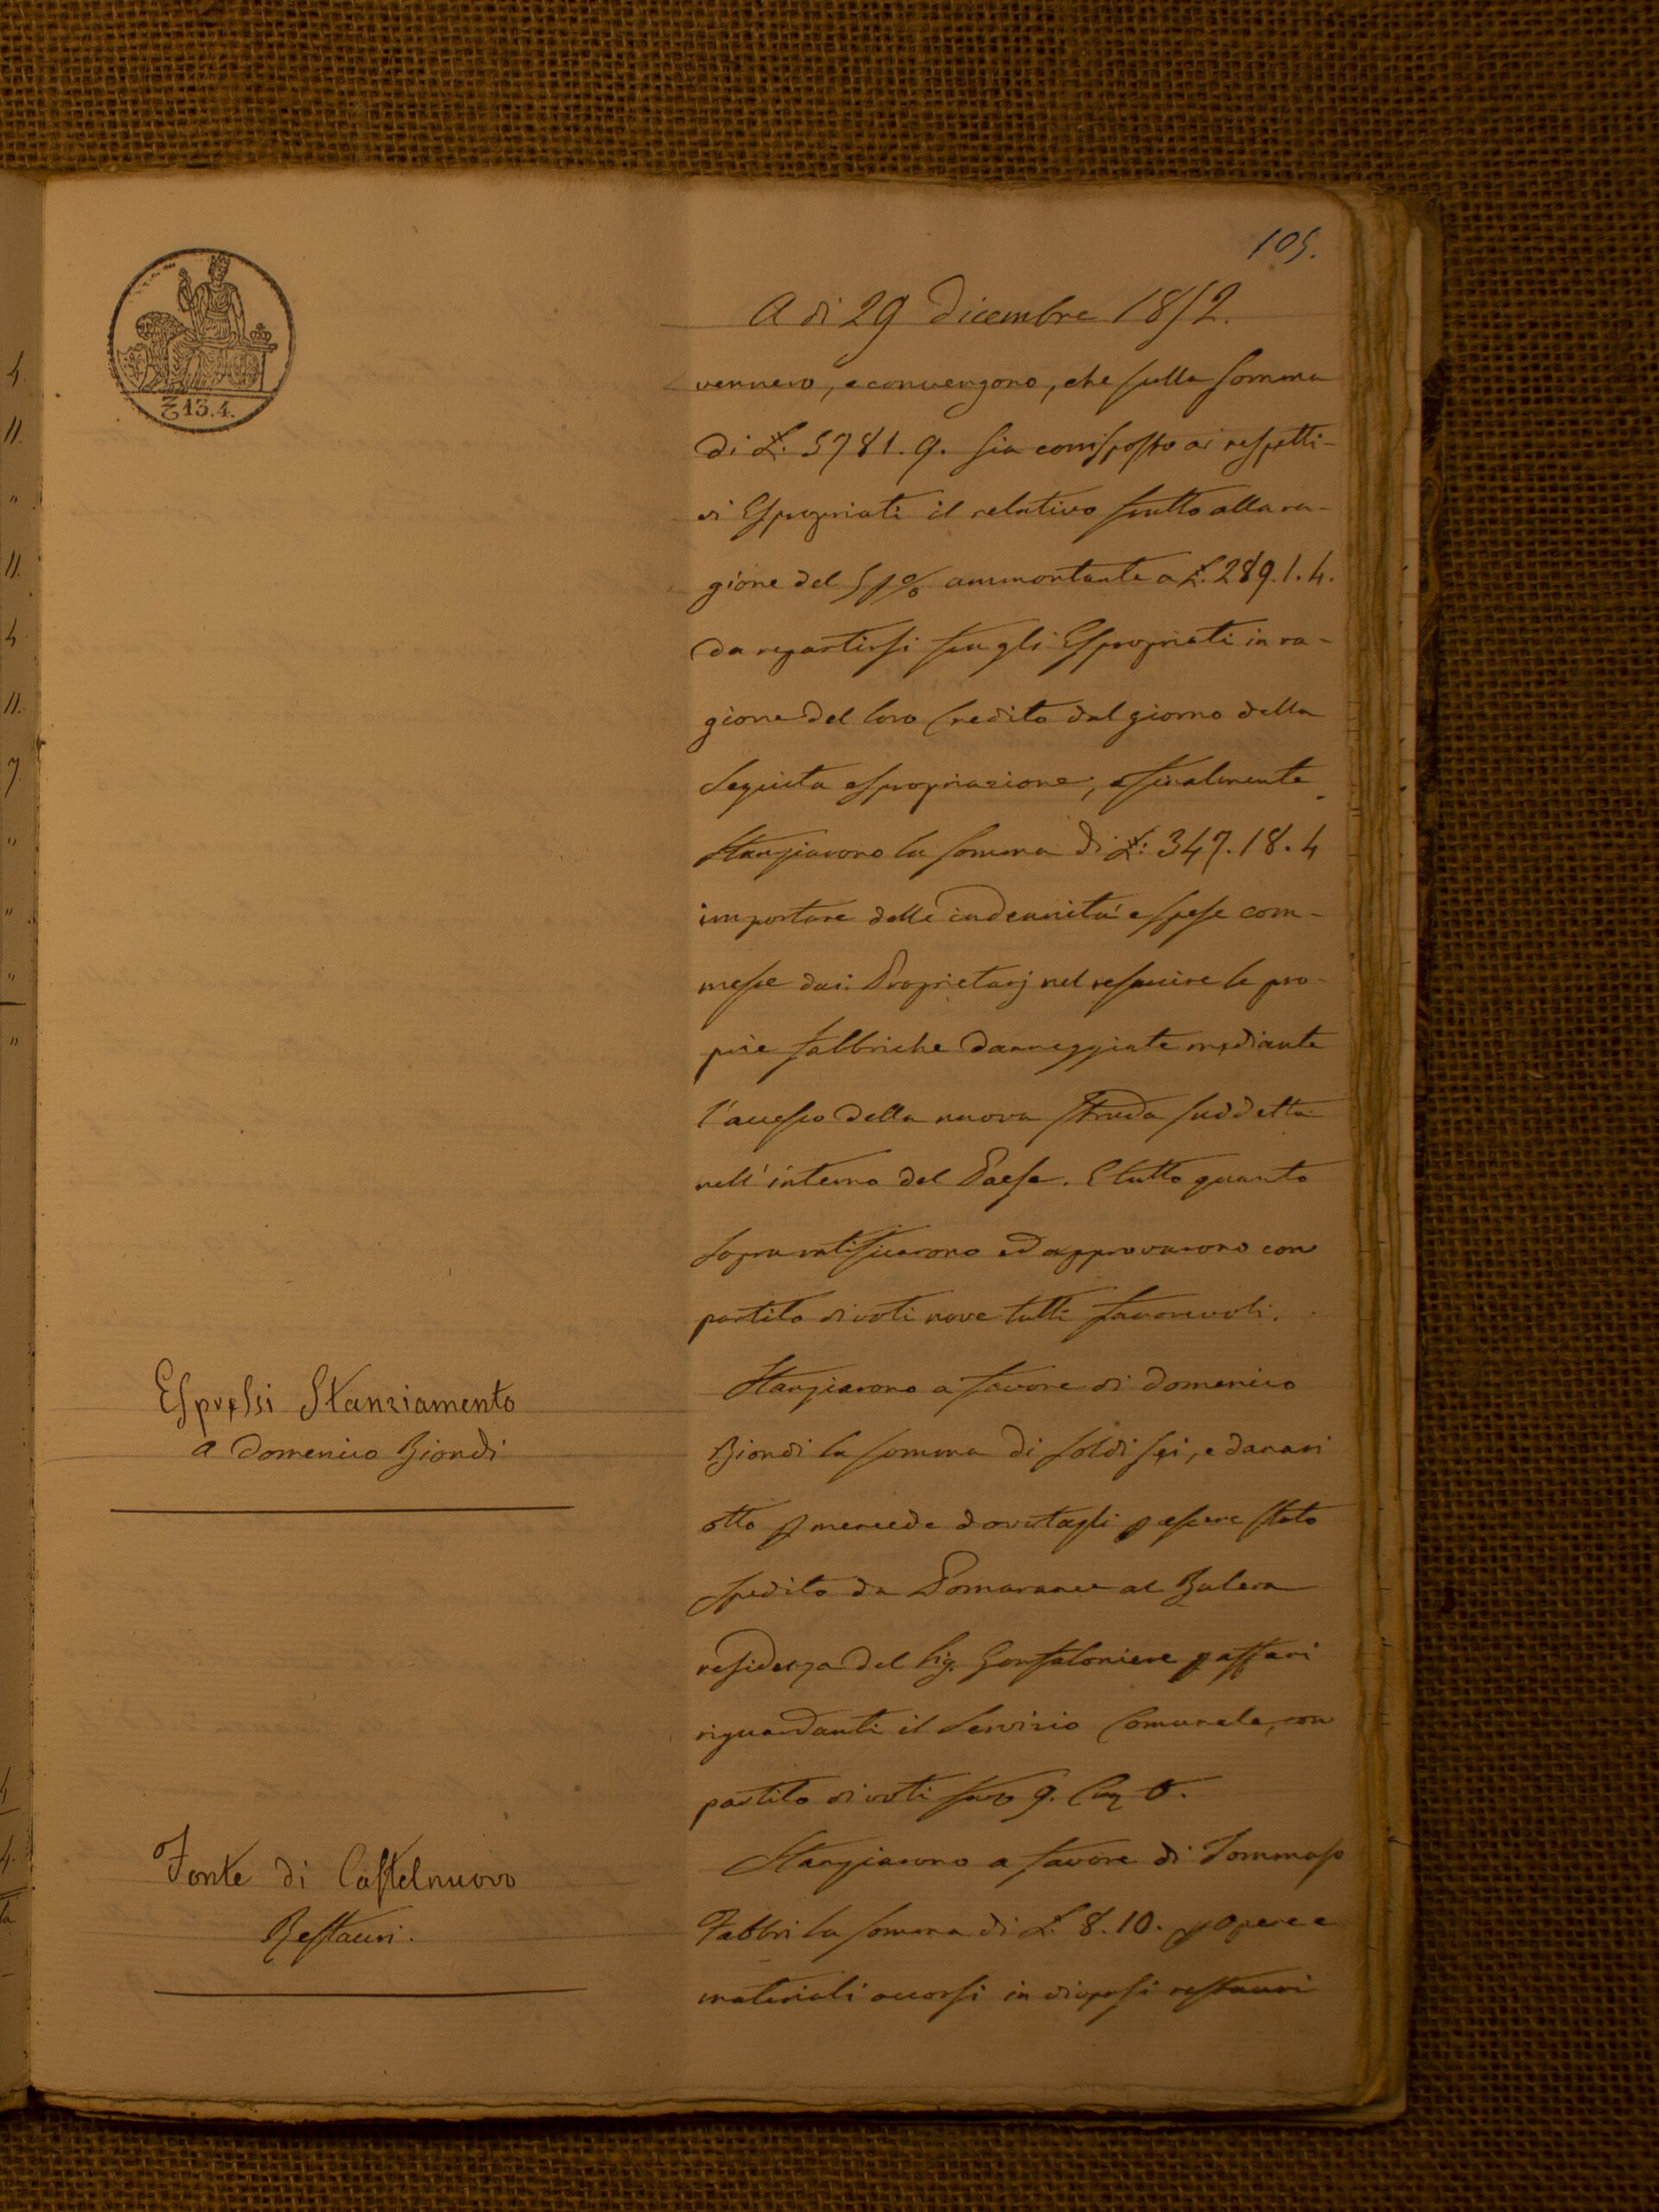 105.
A di 29 Dicembre 1852.
vennero, e convengono, che sulla somma
di £. 5781. 9. sia corrisposto ai respetti-
vi Espropriati il relativo frutto alla ra-
gione del 5 p% ammontante a £. 289. 1. 4.
da repartirsi fra gli Espropriati in ra-
gione del loro Credito dal giorno della
seguita espropriazione, e finalmente
Stanziarono la somma di £: 347. 18. 4
importare delle indennità e spese com-
messe dai Proprietarj nel resarcire le pro-
prie fabbriche danneggiate mediante
l'accesso della nuova Strada suddetta
nell'interno del Paese. E tutto quanto
sopra ratificarono ed approvarono con
partito di voti nove tutti favorevoli.
Espressi Stanziamento
a Domenico Biondi
Stanziarono a favore di Domenico
Biondi la somma di soldi sei, e danari
otto p mercede dovutagli p essere stato
spedito da Pomarance al Bulera
residenza del Sig. Gonfaloniere p affari
riguardanti il Servizio Comunale, con
partito di voti fav 9. Con 0.
Fonte di Castelnuovo
Restauri.
Stanziarono a favore di Tommaso
Fabbri la somma di £. 8. 10. p opere e
materiali occorsi in diversi restauri
13. 4.
4.
11.
"
11.
4
11.
7
"
"
"
"